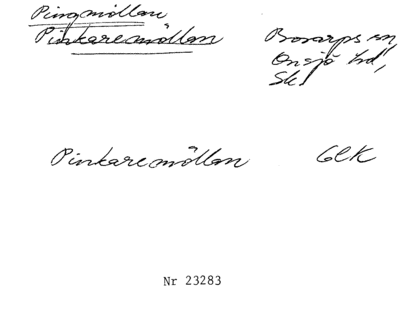 Pingmöllan
Pinkaremöllan Bosarps sn
Onsjö hd,
Sk.
Pinkaremöllan GEK
Nr 23283